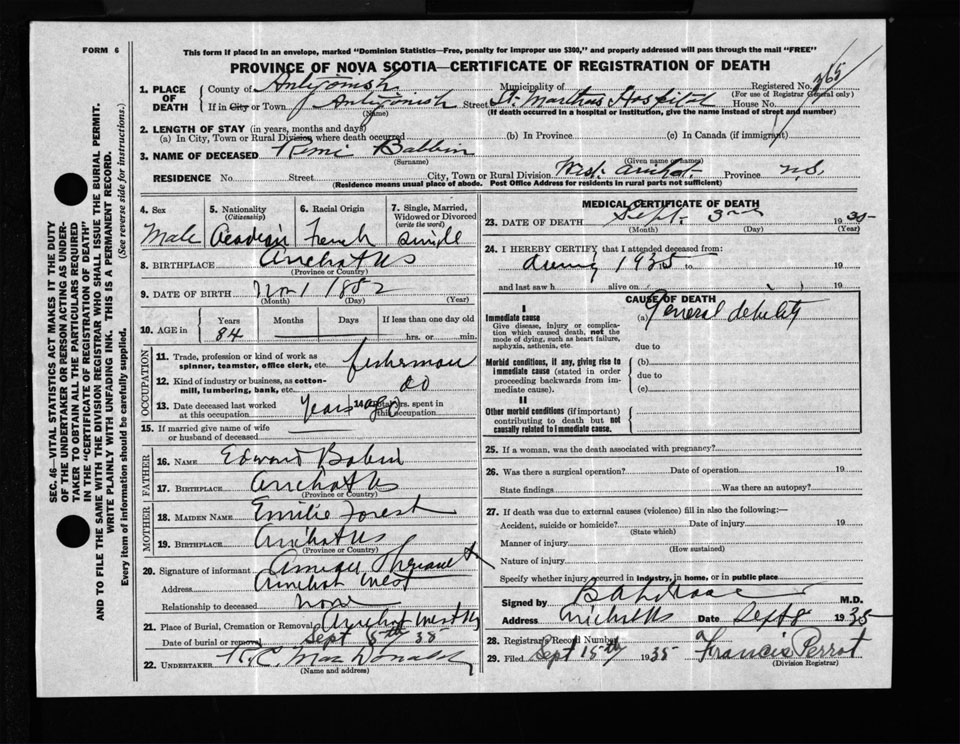 FORM 6
This form if placed in an envelope, marked "Dominion Statistics—Free, penalty for improper use $300," and properly addressed will pass through the mail "FREE"
PROVINCE OF NOVA SCOTIA—CERTIFICATE OF REGISTRATION OF DEATH
SEC. 46—VITAL STATISTICS ACT MAKES IT THE DUTY
OF THE UNDERTAKER OR PERSON ACTING AS UNDER-
TAKER TO OBTAIN ALL THE PARTICULARS REQUIRED
IN THE "CERTIFICATE OF REGISTRATION OF DEATH"
AND TO FILE THE SAME WITH THE DIVISION REGISTRAR WHO SHALL ISSUE THE BURIAL PERMIT.
WRITE PLAINLY WITH UNFADING INK. THIS IS A PERMANENT RECORD.
Every item of information should be carefully supplied. (See reverse side for instructions.)
1. PLACE OF DEATH County of Antigonish Municipality of Registered No. 365
(For use of Registrar General only)
If in City or Town Antigonish Street St. Marthas Hospital House No.
(Name) (If death occurred in a hospital or institution, give the name instead of street and number)
2. LENGTH OF STAY (in years, months and days)
(a) In City, Town or Rural Division where death occurred (b) In Province (c) In Canada (if immigrant)
3. NAME OF DECEASED Remi Babbin
(Surname) (Given name or names)
RESIDENCE No. Street City, Town or Rural Division West Arichat Province N.S.
(Residence means usual place of abode. Post Office Address for residents in rural parts not sufficient)
4. Sex Male
5. Nationality (Citizenship) Acadian
6. Racial Origin French
7. Single, Married, Widowed or Divorced (write the word) Single
8. BIRTHPLACE Arichat NS
(Province or Country)
9. DATE OF BIRTH Nov 1 1852
(Month) (Day) (Year)
10. AGE in Years 84 Months Days If less than one day old hrs. or min.
OCCUPATION
11. Trade, profession or kind of work as spinner, teamster, office clerk, etc. fisherman
12. Kind of industry or business, as cotton-mill, lumbering, bank, etc. do
13. Date deceased last worked at this occupation years ago 14. Total yrs. spent in this occupation
15. If married give name of wife or husband of deceased
FATHER
16. NAME Edward Babin
17. BIRTHPLACE Arichat NS
(Province or Country)
MOTHER
18. MAIDEN NAME Emilie Forest
19. BIRTHPLACE Arichat NS
(Province or Country)
20. Signature of informant
Address Arichat West
Relationship to deceased none
21. Place of Burial, Cremation or Removal Arichat West NS
Date of burial or removal Sept 5th 35
22. UNDERTAKER R.C. MacDonald
(Name and address)
MEDICAL CERTIFICATE OF DEATH
23. DATE OF DEATH Sept. 3rd 1935
(Month) (Day) (Year)
24. I HEREBY CERTIFY that I attended deceased from:
during 1935 to 19
and last saw h alive on 19
CAUSE OF DEATH
I
Immediate cause
Give disease, injury or complication which caused death, not the mode of dying, such as heart failure, asphyxia, asthenia, etc.
(a) General debility
due to
Morbid conditions, if any, giving rise to immediate cause (stated in order proceeding backwards from immediate cause).
(b)
due to
(c)
II
Other morbid conditions (if important) contributing to death but not causally related to immediate cause.
25. If a woman, was the death associated with pregnancy?
26. Was there a surgical operation? Date of operation 19
State findings Was there an autopsy?
27. If death was due to external causes (violence) fill in also the following:—
Accident, suicide or homicide? Date of injury 19
(State which)
Manner of injury
(How sustained)
Nature of injury
Specify whether injury occurred in industry, in home, or in public place
Signed by M.D.
Address Arichat NS Date Sept 8 1935
28. Registrar's Record Number
29. Filed Sept 15th 1935 Francis Perrot
(Division Registrar)